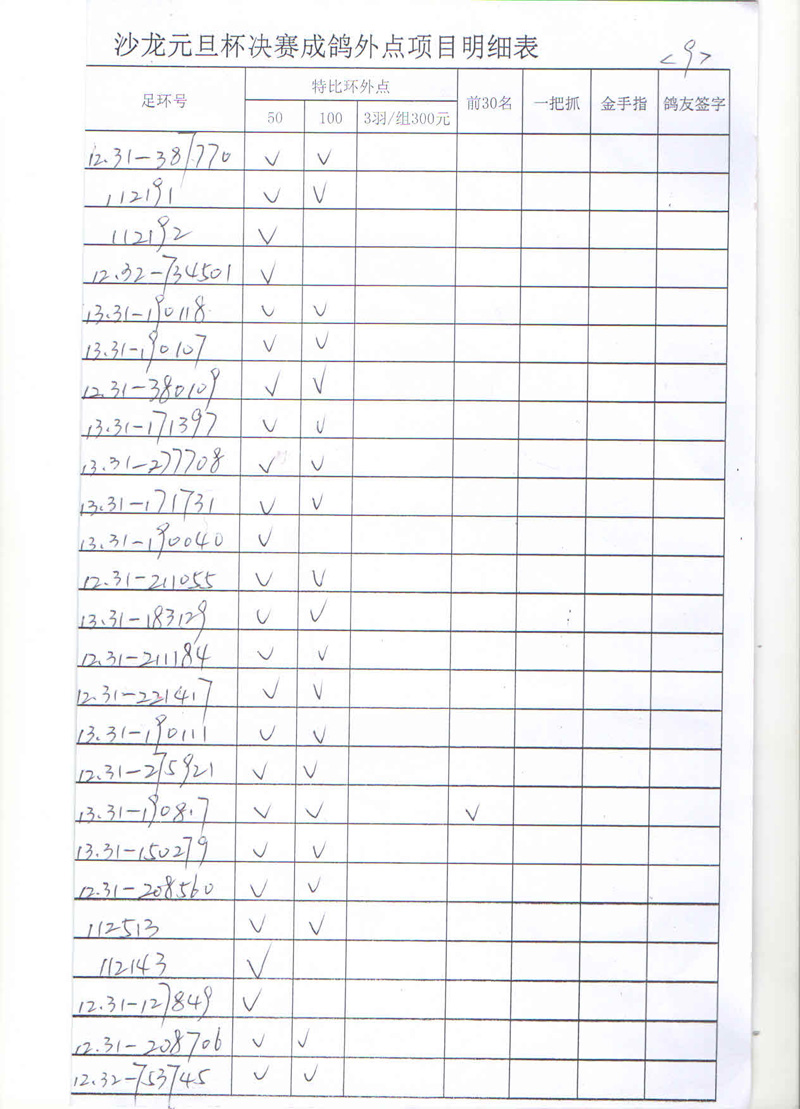 沙龙元旦杯决赛成鸽外点项目明细表
<9>
足环号 特比环外点 前30名 一把抓 金手指 鸽友签字
50 100 3羽/组300元
12.31-387770 √ √
112191 √ √
112192 √
12.32-734501 √
13.31-190118 √ √
13.31-190107 √ √
12.31-380109 √ √
13.31-171397 √ √
13.31-277708 √ √
13.31-171731 √ √
13.31-190040 √
12.31-211055 √ √
13.31-183129 √ √
12.31-211184 √ √
12.31-221417 √ √
13.31-190111 √ √
12.31-275921 √ √
13.31-190817 √ √ √
13.31-150279 √ √
12.31-208560 √ √
112513 √ √
112143 √
12.31-127849 √
12.31-208706 √ √
12.32-753745 √ √